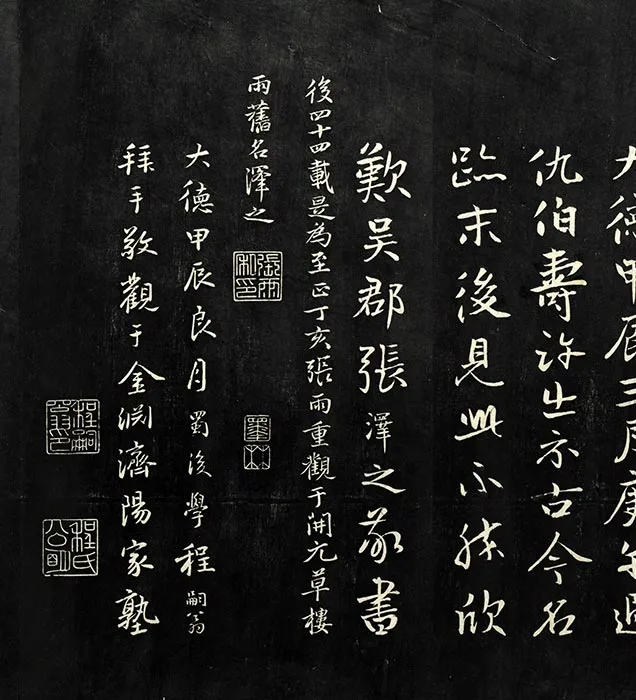 大德甲辰三月庚午過
仇伯壽許出示古今名
跡末後見此不勝欣
歎吳郡張澤之敬書
後四十四載是為至正丁亥張雨重觀于開元草樓
雨舊名澤之
張雨私印
墨林
大德甲辰良月蜀後學程嗣翁
拜手敬觀于金淵濟陽家塾
程嗣翁印
程氏公明